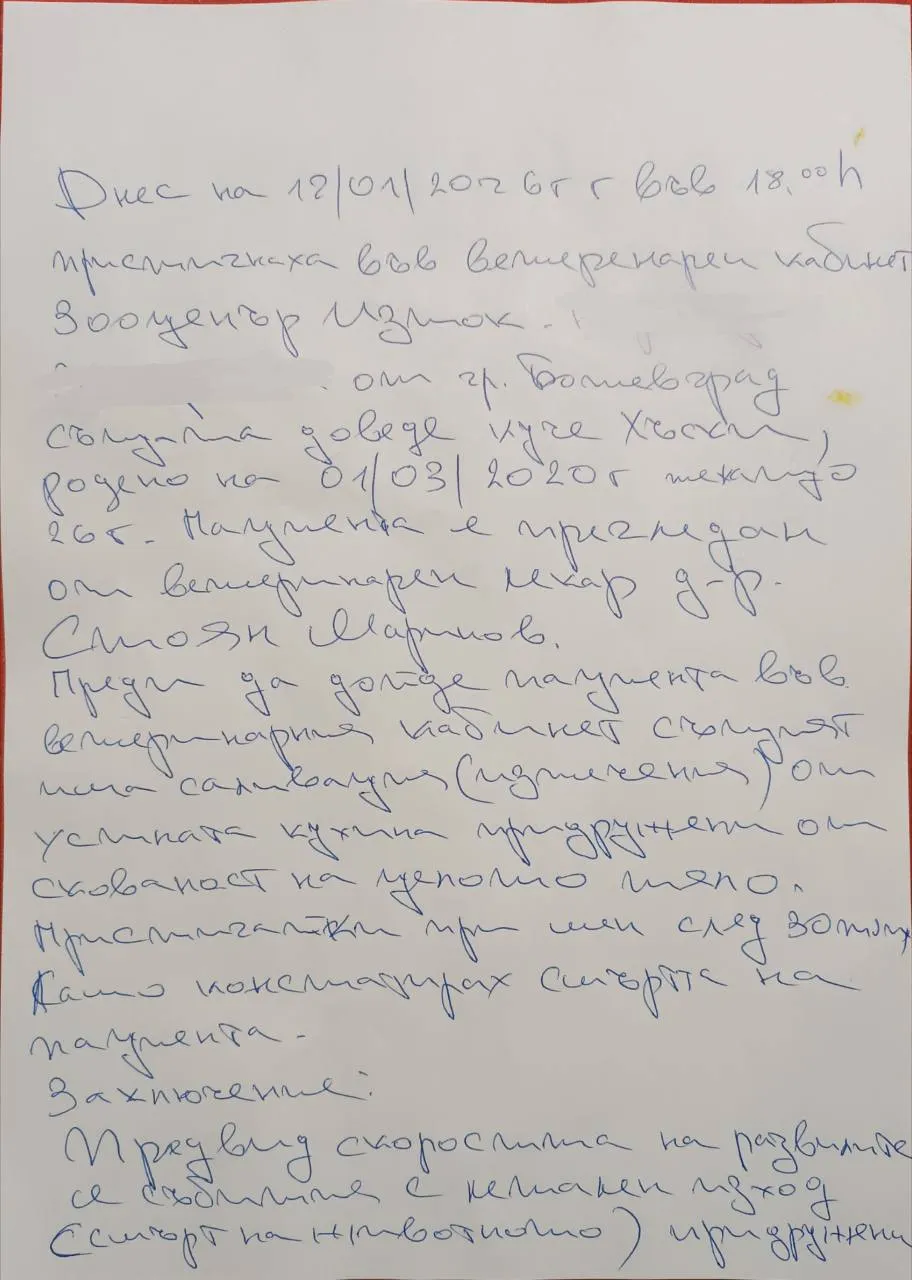 Днес на 12/01/2026г г във 18,00h
пристигнаха във ветеренарен кабинет
Зооценър Изток.
от гр. Ботевград
съпугата доведе куче Хъски,
родено на 01/03/2020г тежащо
26г. Пациента е прегледан
от ветеринарен лекар д-р.
Стоян Маринов.
Преди да дойде пациента във
ветеринарния кабинет
има саливация (изтечения) от
устната кухина придружени от
скованост на цялото тяло.
Пристигайки при мен след 30мин,
Като констатирах смъртта на
пациента.
Заключение:
Предвид скоростта на развилите
се събития с летален изход
(смърт на животното) придружени